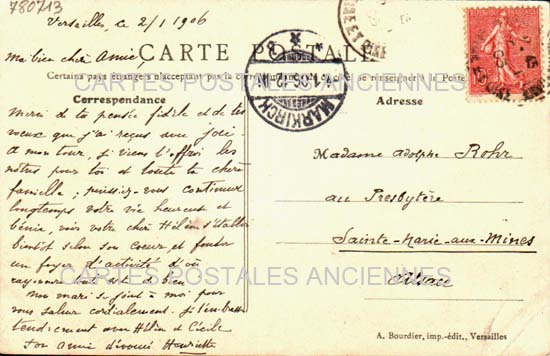 780713
Versailles, le 2/1 1906
Ma bien chère Amie
CARTE POSTALE
Certains pays étrangers n'acceptant pas la correspondance se renseigner à la Poste
CARTES POSTALES ANCIENNES
Correspondance
Adresse
MARKIRCH
Merci de ta pensée fidèle et de tes
vœux que j'ai reçus avec joie.
A mon tour, je viens t'offrir les
nôtres pour toi et toute ta chère
famille ; puissiez-vous continuer
longtemps votre vie heureuse et
bénie, voir votre cher Hélen s'établir
bientôt selon son cœur et fonder
un foyer d'activité d'où
rayonne tout de bien
Mon mari se joint à moi pour
vous saluer cordialement. Je t'embrasse
tendrement avec Hélène et Cécile
Ton amie dévouée Henriette
Madame Adolphe Rohr
au Presbytère
Sainte-Marie-aux-Mines
Alsace
CARTES POSTALES ANCIENNES
A. Bourdier, imp.-édit., Versailles